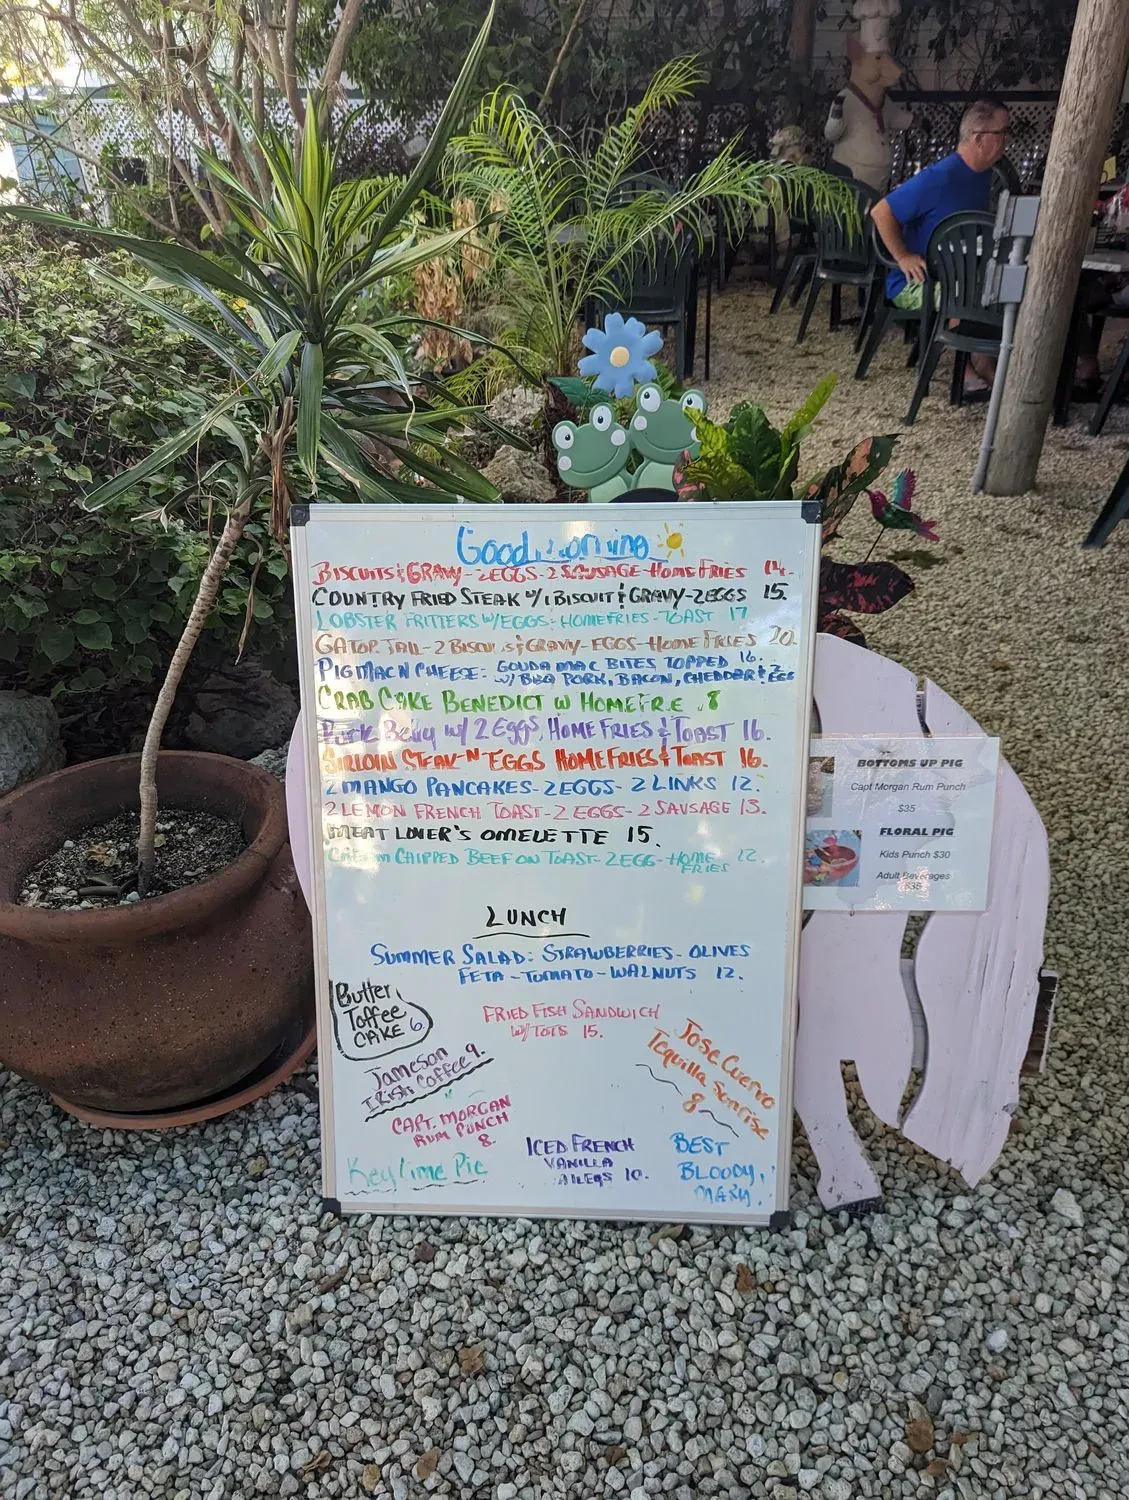 Good Morning
BISCUITS & GRAVY - 2 EGGS - 2 SAUSAGE - HOME FRIES 14.
COUNTRY FRIED STEAK W/ 1 BISCUIT & GRAVY - 2 EGGS 15.
LOBSTER FRITTERS W/ EGGS - HOMEFRIES - TOAST 17
GATOR TAIL - 2 BISCUITS & GRAVY - EGGS - HOME FRIES 20.
PIG MAC N CHEESE: GOUDA MAC BITES TOPPED 16.
W/ BBQ PORK, BACON, CHEDDAR & EGG
CRAB CAKE BENEDICT W HOMEFRIE 8
Pork Belly w/ 2 Eggs, HOME FRIES & TOAST 16.
SIRLOIN STEAK N EGGS HOME FRIES & TOAST 16.
2 MANGO PANCAKES - 2 EGGS - 2 LINKS 12.
2 LEMON FRENCH TOAST - 2 EGGS - 2 SAUSAGE 13.
MEAT LOVER'S OMELETTE 15.
CHIPPED BEEF ON TOAST - 2 EGG - HOME 12.
FRIES
LUNCH
SUMMER SALAD: STRAWBERRIES - OLIVES
FETA - TOMATO - WALNUTS 12.
Butter
Toffee
CAKE 6.
FRIED FISH SANDWICH
W/ TOTS 15.
JAMESON
IRISH COFFEE 9.
Jose Cuervo
Tequilla Sonrise
8
CAPT. MORGAN
RUM PUNCH
8.
Key Lime Pie
ICED FRENCH
VANILLA
10.
BEST
BLOODY
MARY.
BOTTOMS UP PIG
Capt Morgan Rum Punch
$35
FLORAL PIG
Kids Punch $30
Adult Beverages
$35